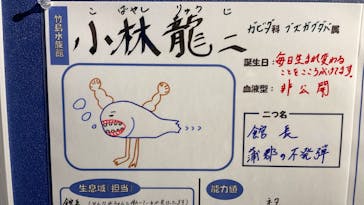 竹島水族館
こ ばやし りゅう じ
小林 龍二
ガビダ科 ブスガクダベ属
誕生日:毎日生まれ変わる
ことをこころがけてます
血液型:非公開
二つ名
館長
蒲郡の不発弾
生息域(担当)
能力値
館長